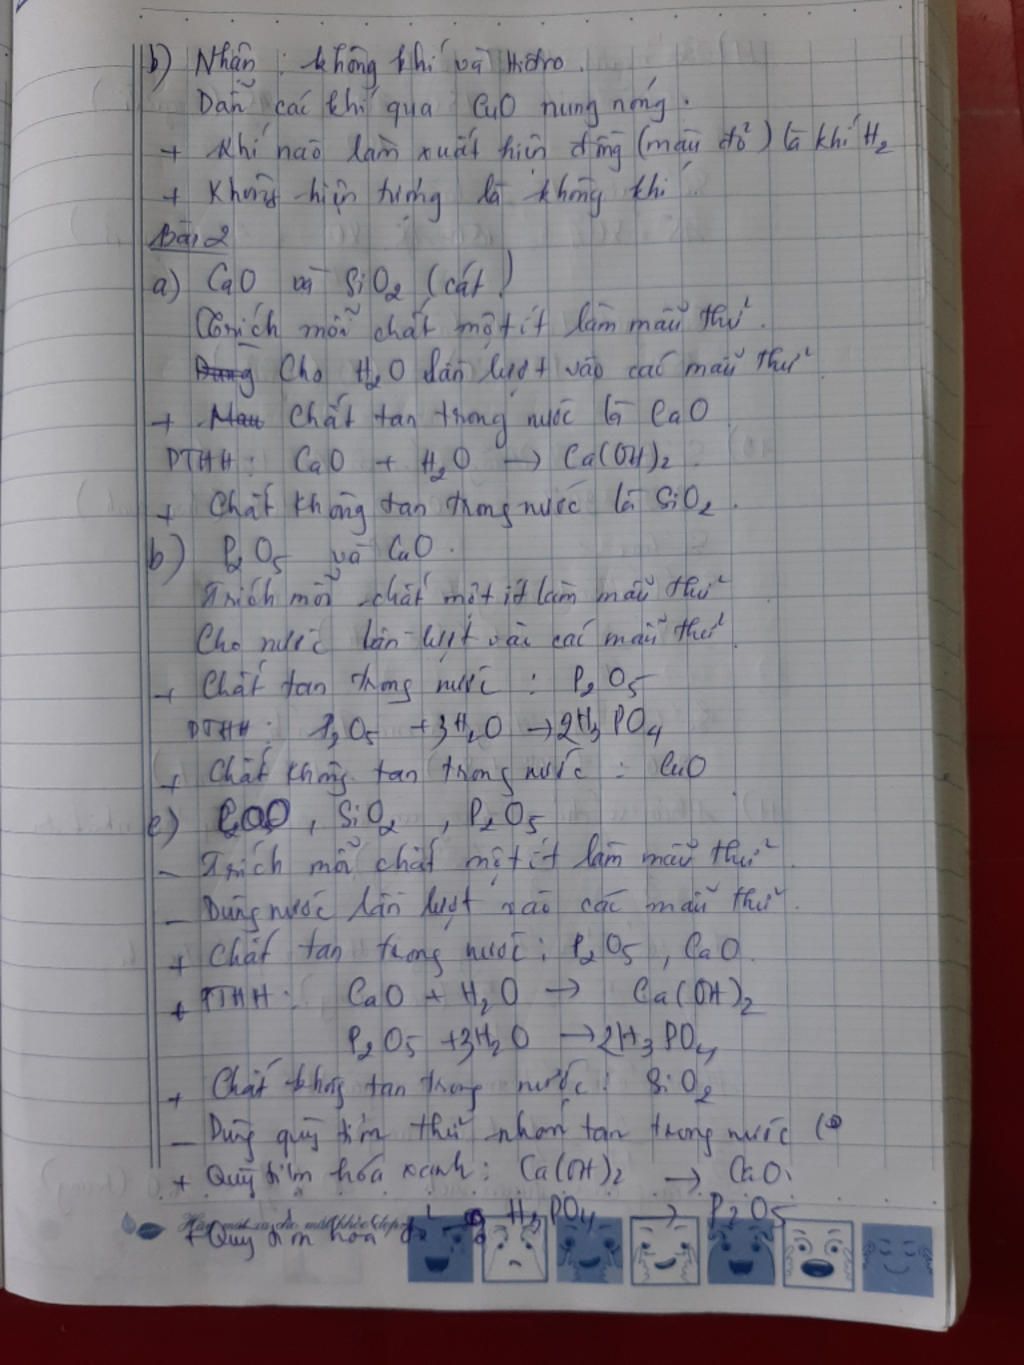 b) Nhận : không khí và Hiđro.
Dẫn các khí qua CuO nung nóng.
+ Khí nào làm xuất hiện đồng (màu đỏ) là khí H2
+ Không hiện tượng là không khí
Bài 2
a) CaO và SiO2 (cát)
Trích mỗi chất một ít làm mẫu thử.
Cho H2O lần lượt vào các mẫu thử.
+ Chất tan trong nước là CaO
PTHH: CaO + H2O → Ca(OH)2
+ Chất không tan trong nước là SiO2.
b) P2O5 và CuO.
Trích mỗi chất một ít làm mẫu thử
Cho nước lần lượt vào các mẫu thử
+ Chất tan trong nước : P2O5
PTHH: P2O5 + 3H2O → 2H3PO4
+ Chất không tan trong nước : CuO
c) CaO, SiO2, P2O5
- Trích mỗi chất một ít làm mẫu thử.
- Dùng nước lần lượt vào các mẫu thử.
+ Chất tan trong nước: P2O5, CaO.
+ PTHH: CaO + H2O → Ca(OH)2
P2O5 + 3H2O → 2H3PO4
+ Chất không tan trong nước: SiO2
- Dùng quỳ tím thử nhóm tan trong nước (
+ Quỳ tím hóa xanh: Ca(OH)2 → CaO.
+ Quỳ tím hóa đỏ : H3PO4 → P2O5